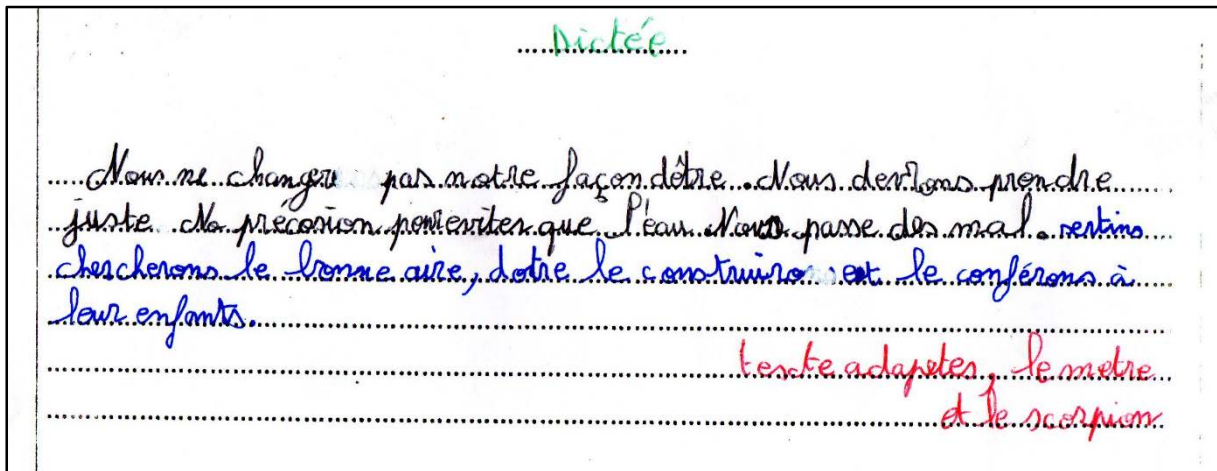 Dictée
Nous ne changere pas notre façon dêtre. Nous devrons prendre
juste No précosion pour evites que l'eau Nous passe des mal. sertins
chercherons le bonne aire, dotre le construirons et le conférons à
leur enfants.
texte adaptes, le metre
et le scorpion